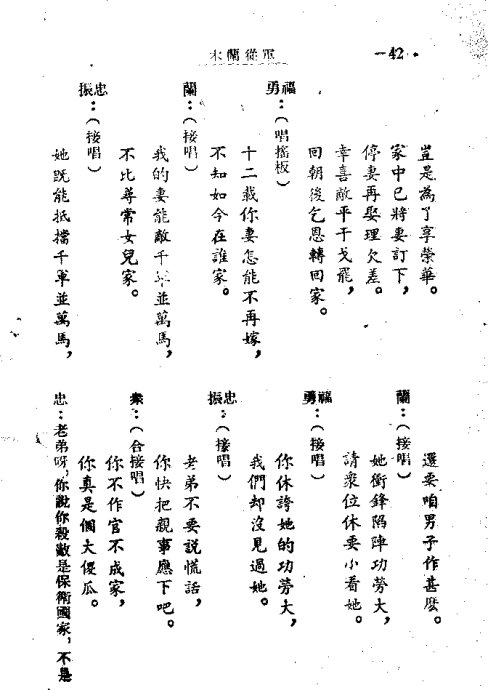 木蘭從軍
—42·
豈是為了享榮華。
家中已將妻訂下，
停妻再娶理欠差。
幸喜敵平干戈罷，
回朝後乞恩轉回家。
勇福：（唱搖板）
十二載你妻怎能不再嫁，
不知如今在誰家。
蘭：（接唱）
我的妻能敵千軍並萬馬，
不比尋常女兒家。
振忠：（接唱）
她既能抵擋千軍並萬馬，
還要咱男子作甚麼。
蘭：（接唱）
她衝鋒陷陣功勞大，
請衆位休要小看她。
勇福：（接唱）
你休誇她的功勞大，
我們却沒見過她。
振忠：（接唱）
老弟不要說慌話，
你快把親事應下吧。
衆：（合接唱）
你不作官不成家，
你真是個大傻瓜。
忠：老弟呀，你說你殺敵是保衛國家，不是